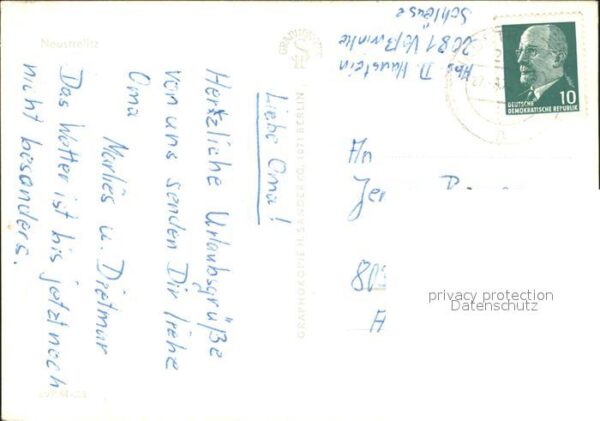 Neustrelitz
Liebe Oma!
Herzliche Urlaubsgrüße
von uns senden Dir liebe
Oma
Marlies u. Dietmar
Das Wetter ist bis jetzt noch
nicht besonders.
GRAPHOKOPIE H. SANDER KG, 1071 BERLIN
Abs. D. Haustein
2081 Voßwinkel
Schleuse
10
DEUTSCHE
DEMOKRATISCHE REPUBLIK
An
808
privacy protection
Datenschutz